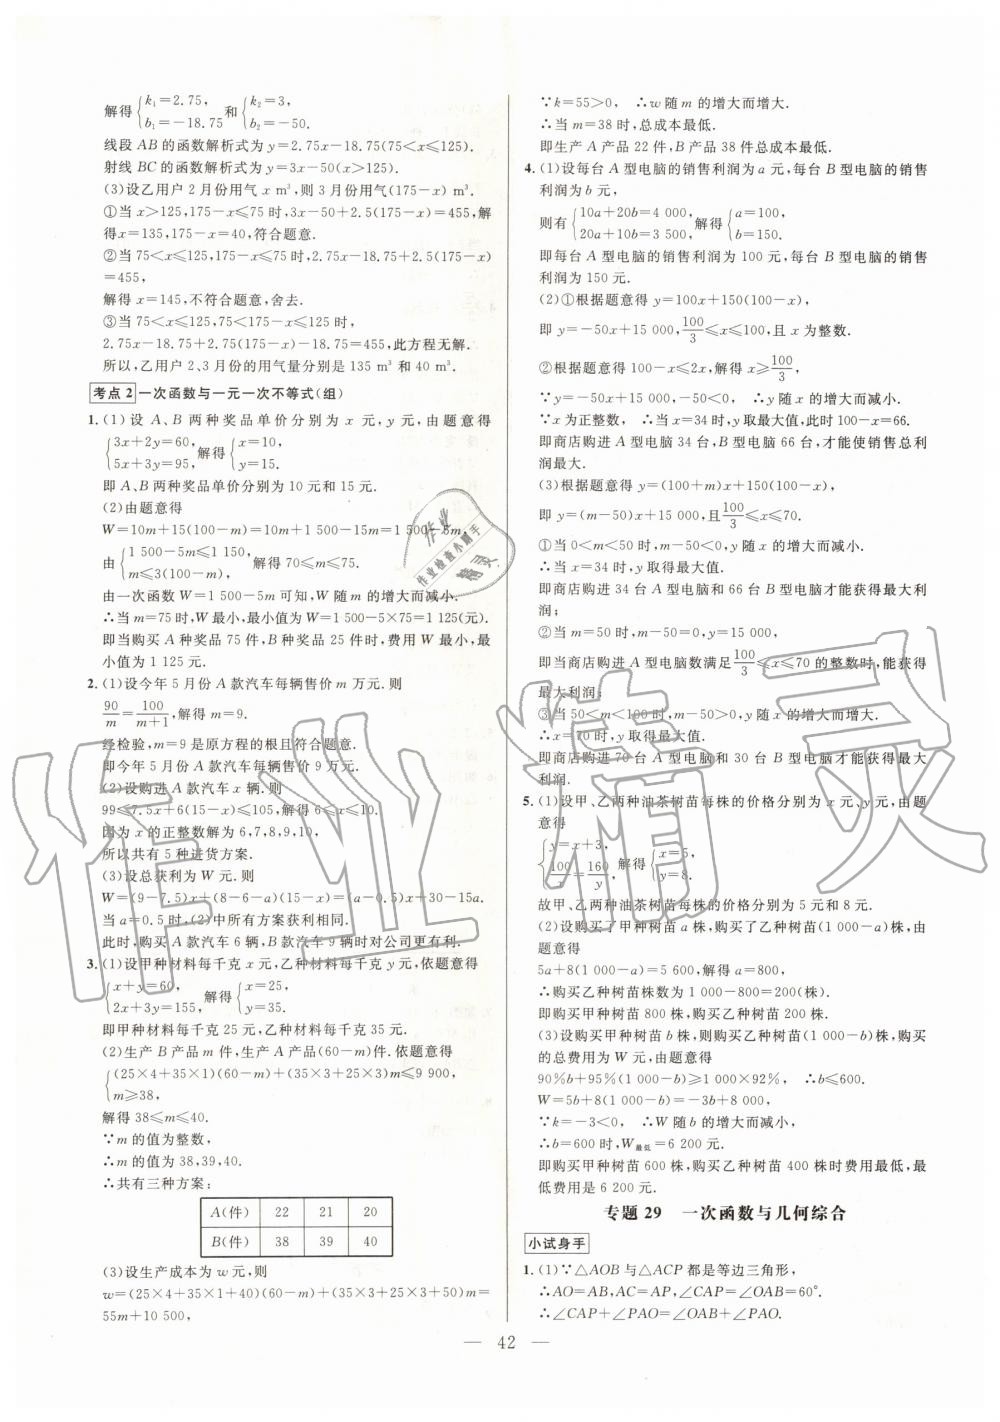 解得{k₁=2.75, b₁=-18.75 和{k₂=3, b₂=-50.
线段 AB 的函数解析式为 y=2.75x-18.75(75<x≤125).
射线 BC 的函数解析式为 y=3x-50(x>125).
(3)设乙用户 2 月份用气 x m³,则 3 月份用气(175-x) m³.
①当 x>125,175-x≤75 时,3x-50+2.5(175-x)=455,解
得x=135,175-x=40,符合题意.
②当 75<x≤125,175-x≤75 时,2.75x-18.75+2.5(175-x)
=455,
解得 x=145,不符合题意,舍去.
③当 75<x≤125,75<175-x≤125 时,
2.75x-18.75+2.75(175-x)-18.75=455,此方程无解.
所以,乙用户 2、3 月份的用气量分别是 135 m³ 和 40 m³.
考点 2 一次函数与一元一次不等式(组)
1. (1)设 A、B 两种奖品单价分别为 x 元,y 元,由题意得
{3x+2y=60, 5x+3y=95, 解得{x=10, y=15.
即 A、B 两种奖品单价分别为 10 元和 15 元.
(2)由题意得
W=10m+15(100-m)=10m+1 500-15m=1 500-5m,
由{1 500-5m≤1 150, m≤3(100-m), 解得 70≤m≤75.
由一次函数 W=1 500-5m 可知,W 随 m 的增大而减小.
∴当 m=75 时,W 最小,最小值为 W=1 500-5×75=1 125(元).
即当购买 A 种奖品 75 件,B种奖品 25 件时,费用 W 最小,最
小值为 1 125 元.
2. (1)设今年 5 月份 A 款汽车每辆售价 m 万元.则
90/m=100/(m+1),解得 m=9.
经检验,m=9 是原方程的根且符合题意.
即今年 5 月份 A 款汽车每辆售价 9 万元.
(2)设购进 A 款汽车 x 辆.则
99≤7.5x+6(15-x)≤105,解得 6≤x≤10.
因为 x 的正整数解为 6,7,8,9,10,
所以共有 5 种进货方案.
(3)设总获利为 W 元.则
W=(9-7.5)x+(8-6-a)(15-x)=(a-0.5)x+30-15a.
当 a=0.5 时,(2)中所有方案获利相同.
此时,购买 A 款汽车 6 辆,B 款汽车 9 辆时对公司更有利.
3. (1)设甲种材料每千克 x 元,乙种材料每千克 y 元,依题意得
{x+y=60, 2x+3y=155, 解得{x=25, y=35.
即甲种材料每千克 25 元,乙种材料每千克 35 元.
(2)生产 B 产品 m 件,生产 A 产品(60-m)件.依题意得
{(25×4+35×1)(60-m)+(35×3+25×3)m≤9 900, m≥38,
解得 38≤m≤40.
∵m 的值为整数,
∴m 的值为 38,39,40.
∴共有三种方案:
A(件) 22 21 20
B(件) 38 39 40
(3)设生产成本为 w 元,则
w=(25×4+35×1+40)(60-m)+(35×3+25×3+50)m=
55m+10 500,
∵k=55>0, ∴w随 m 的增大而增大.
∴当 m=38 时,总成本最低.
即生产 A 产品 22 件,B 产品 38 件总成本最低.
4. (1)设每台 A 型电脑的销售利润为 a 元,每台 B 型电脑的销售
利润为 b 元,
则有{10a+20b=4 000, 20a+10b=3 500, 解得{a=100, b=150.
即每台 A 型电脑的销售利润为 100 元,每台 B 型电脑的销售
利润为 150 元.
(2)①根据题意得 y=100x+150(100-x),
即 y=-50x+15 000,100/3≤x≤100,且 x 为整数.
②根据题意得 100-x≤2x,解得 x≥100/3,
∵y=-50x+15 000,-50<0, ∴y 随 x 的增大而减小.
∵x 为正整数, ∴当 x=34 时,y取最大值,此时 100-x=66.
即商店购进 A 型电脑 34 台,B型电脑 66 台,才能使销售总利
润最大.
(3)根据题意得 y=(100+m)x+150(100-x),
即 y=(m-50)x+15 000,且100/3≤x≤70.
①当 0<m<50 时,y 随 x 的增大而减小.
∴当 x=34 时,y取得最大值.
即商店购进 34 台 A 型电脑和 66 台 B 型电脑才能获得最大利
润;
②当 m=50 时,m-50=0,y=15 000,
即当商店购进 A 型电脑数满足100/3≤x≤70 的整数时,能获得
最大利润;
③当 50<m<100 时,m-50>0,y随 x 的增大而增大.
∴x=70 时,y 取得最大值.
即商店购进 70 台 A 型电脑和 30 台 B 型电脑才能获得最大
利润.
5. (1)设甲、乙两种油茶树苗每株的价格分别为 x 元、y 元,由题
意得
{y=x+3, 100/x=160/y, 解得{x=5, y=8.
故甲、乙两种油茶树苗每株的价格分别为 5 元和 8 元.
(2)设购买了甲种树苗 a 株,购买了乙种树苗(1 000-a)株,由
题意得
5a+8(1 000-a)=5 600,解得 a=800,
∴购买乙种树苗株数为 1 000-800=200(株).
即购买甲种树苗 800 株,购买乙种树苗 200 株.
(3)设购买甲种树苗 b 株,则购买乙种树苗(1 000-b)株,购买
的总费用为 W 元,由题意得
90%b+95%(1 000-b)≥1 000×92%, ∴b≤600.
W=5b+8(1 000-b)=-3b+8 000,
∵k=-3<0, ∴W 随 b 的增大而减小.
∴b=600 时,W最低=6 200 元.
即购买甲种树苗 600 株,购买乙种树苗 400 株时费用最低,最
低费用是 6 200 元.
专题 29 一次函数与几何综合
小试身手
1. (1)∵△AOB 与△ACP 都是等边三角形,
∴AO=AB,AC=AP,∠CAP=∠OAB=60°.
∴∠CAP+∠PAO=∠OAB+∠PAO.
— 42 —
作业精灵
作业
作业检查小助手
精灵